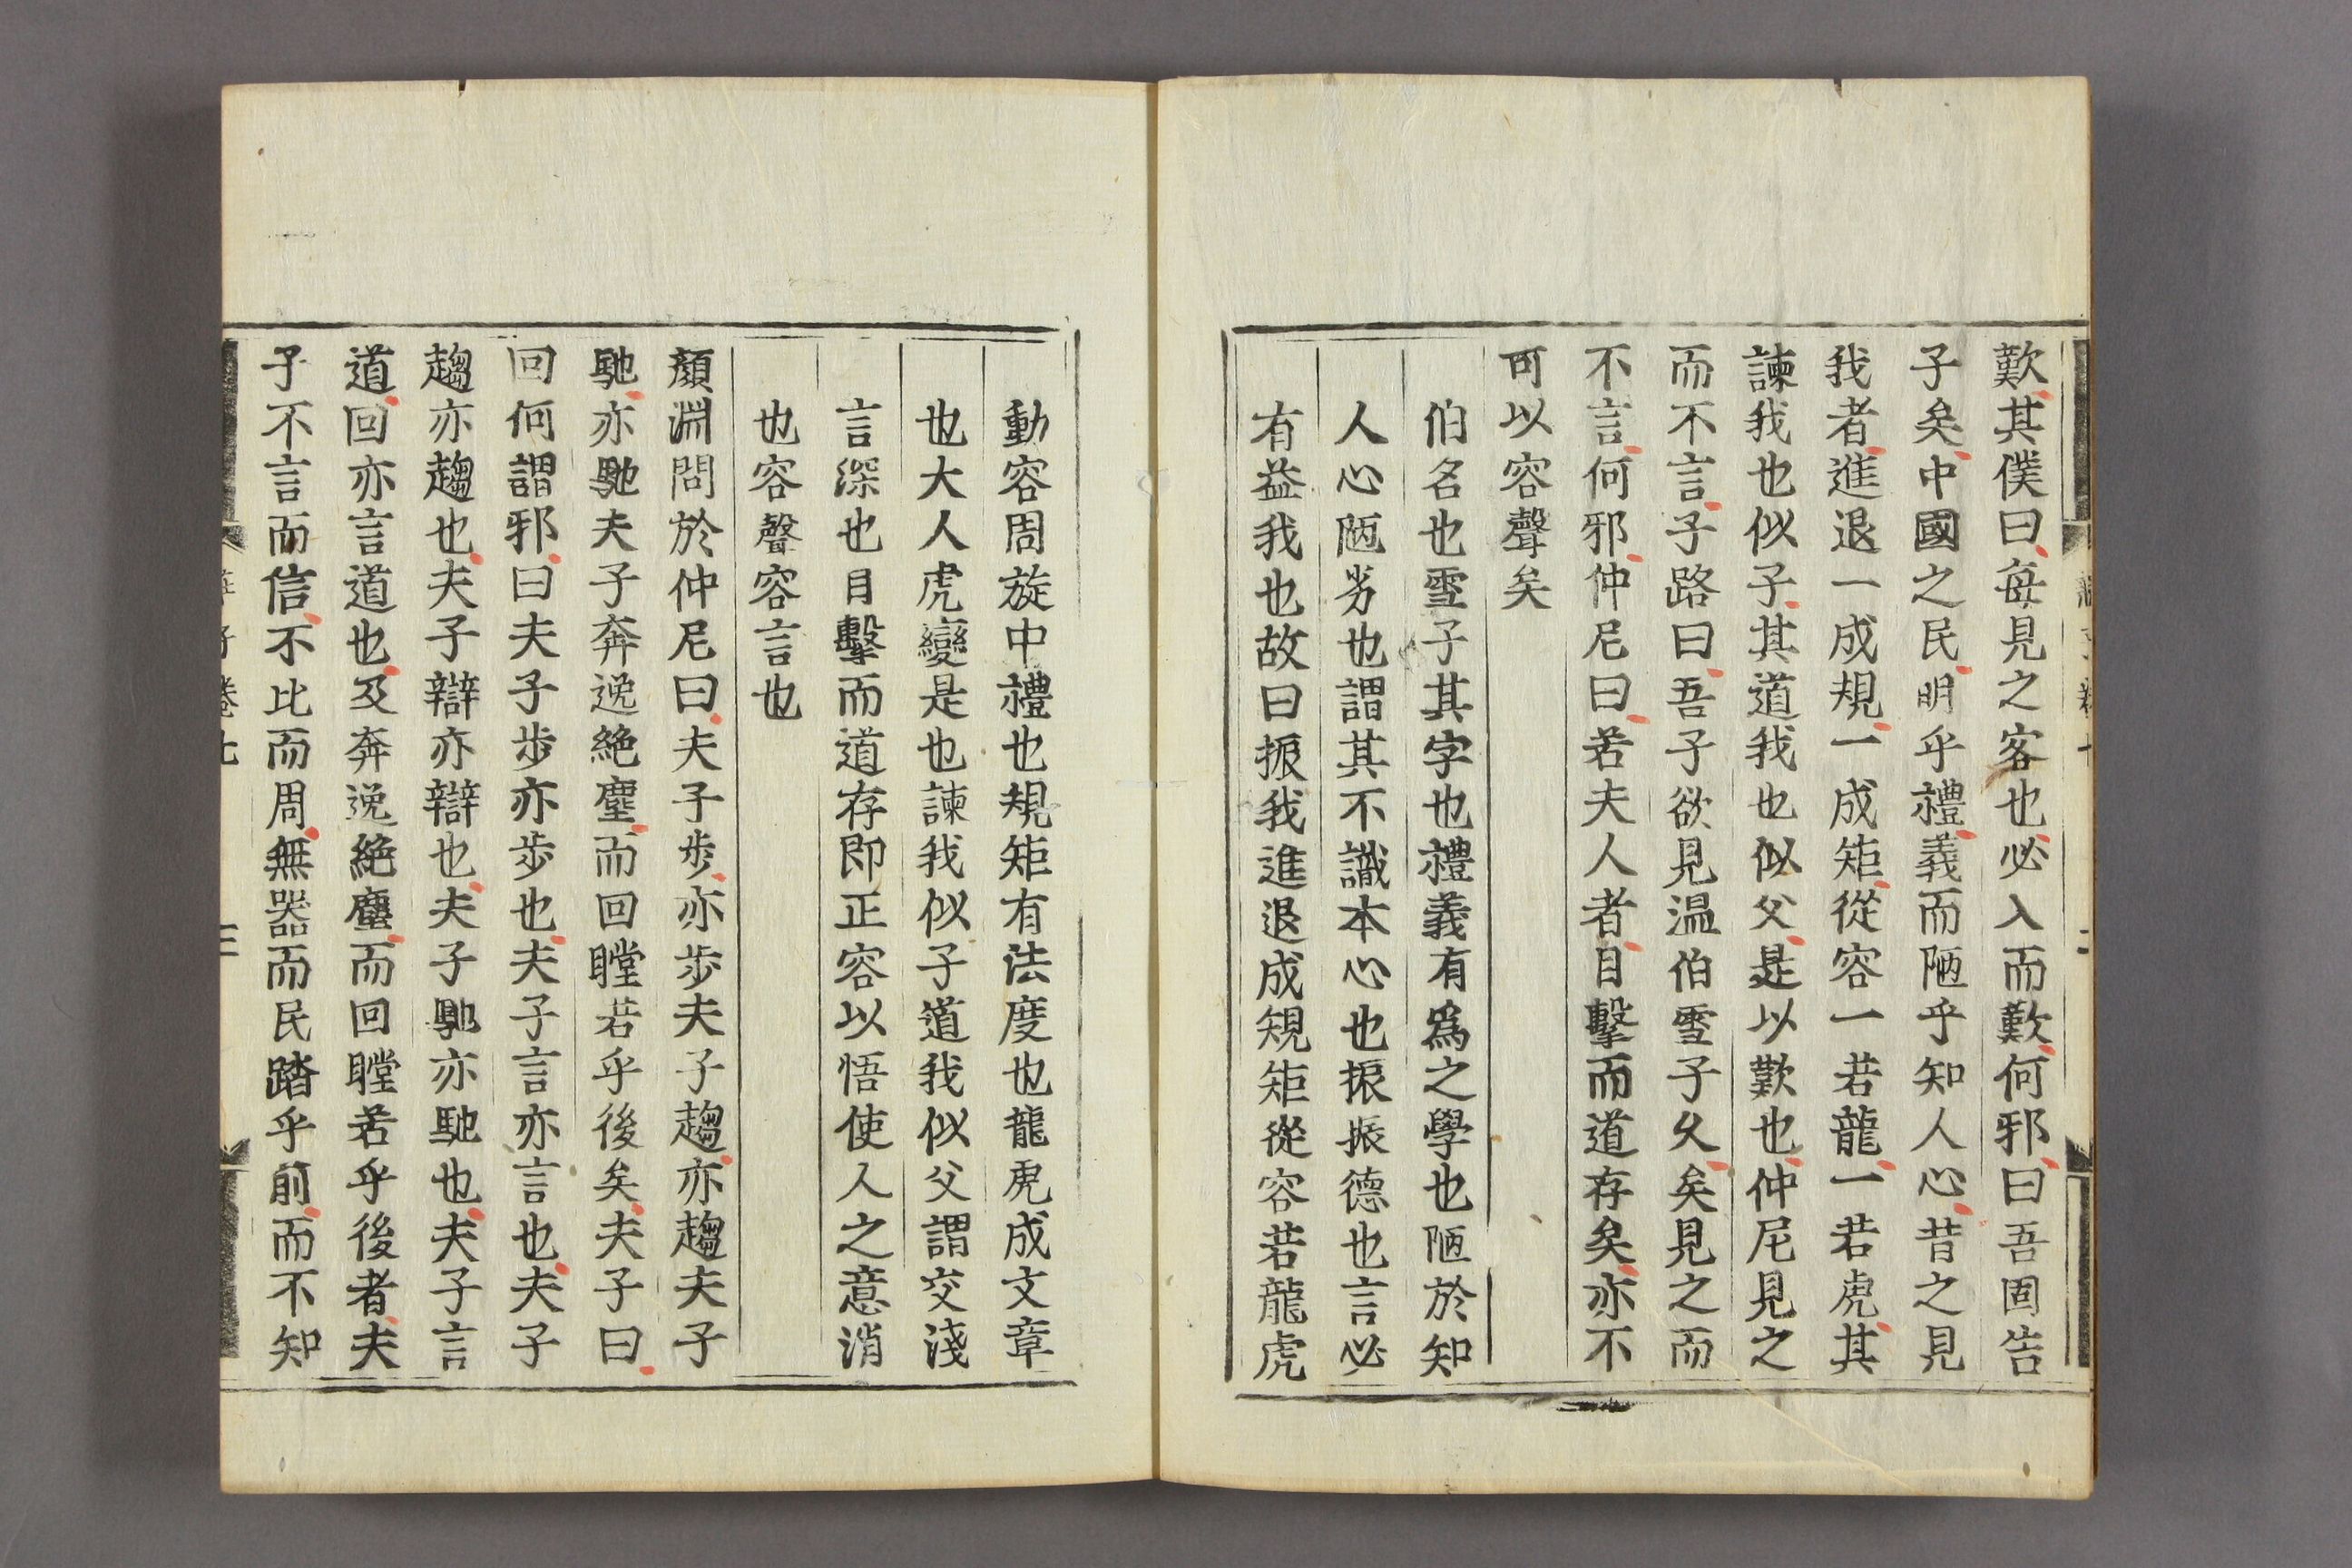 歎其僕曰每見之客也必入而歎何邪曰吾固告
子矣中國之民明乎禮義而陋乎知人心昔之見
我者進退一成規一成矩從容一若龍一若虎其
諫我也似子其道我也似父是以歎也仲尼見之
而不言子路曰吾子欲見温伯雪子乆矣見之而
不言何邪仲尼曰若夫人者目擊而道存矣亦不
可以容聲矣
伯名也雪子其字也禮義有爲之學也陋於知
人心陋劣也謂其不識本心也振振德也言必
有益我也故曰振我進退成規矩從容若龍虎
動容周旋中禮也規矩有法度也龍虎成文章
也大人虎變是也諫我似子道我似父謂交淺
言深也目擊而道存即正容以悟使人之意消
也容聲容言也
顏淵問於仲尼曰夫子步亦步夫子趨亦趨夫子
馳亦馳夫子奔逸絶塵而回瞠若乎後矣夫子曰
回何謂邪曰夫子步亦步也夫子言亦言也夫子
趨亦趨也夫子辯亦辯也夫子馳亦馳也夫子言
道回亦言道也及奔逸絶塵而回瞠若乎後者夫
子不言而信不比而周無器而民蹈乎前而不知
子卷七
三